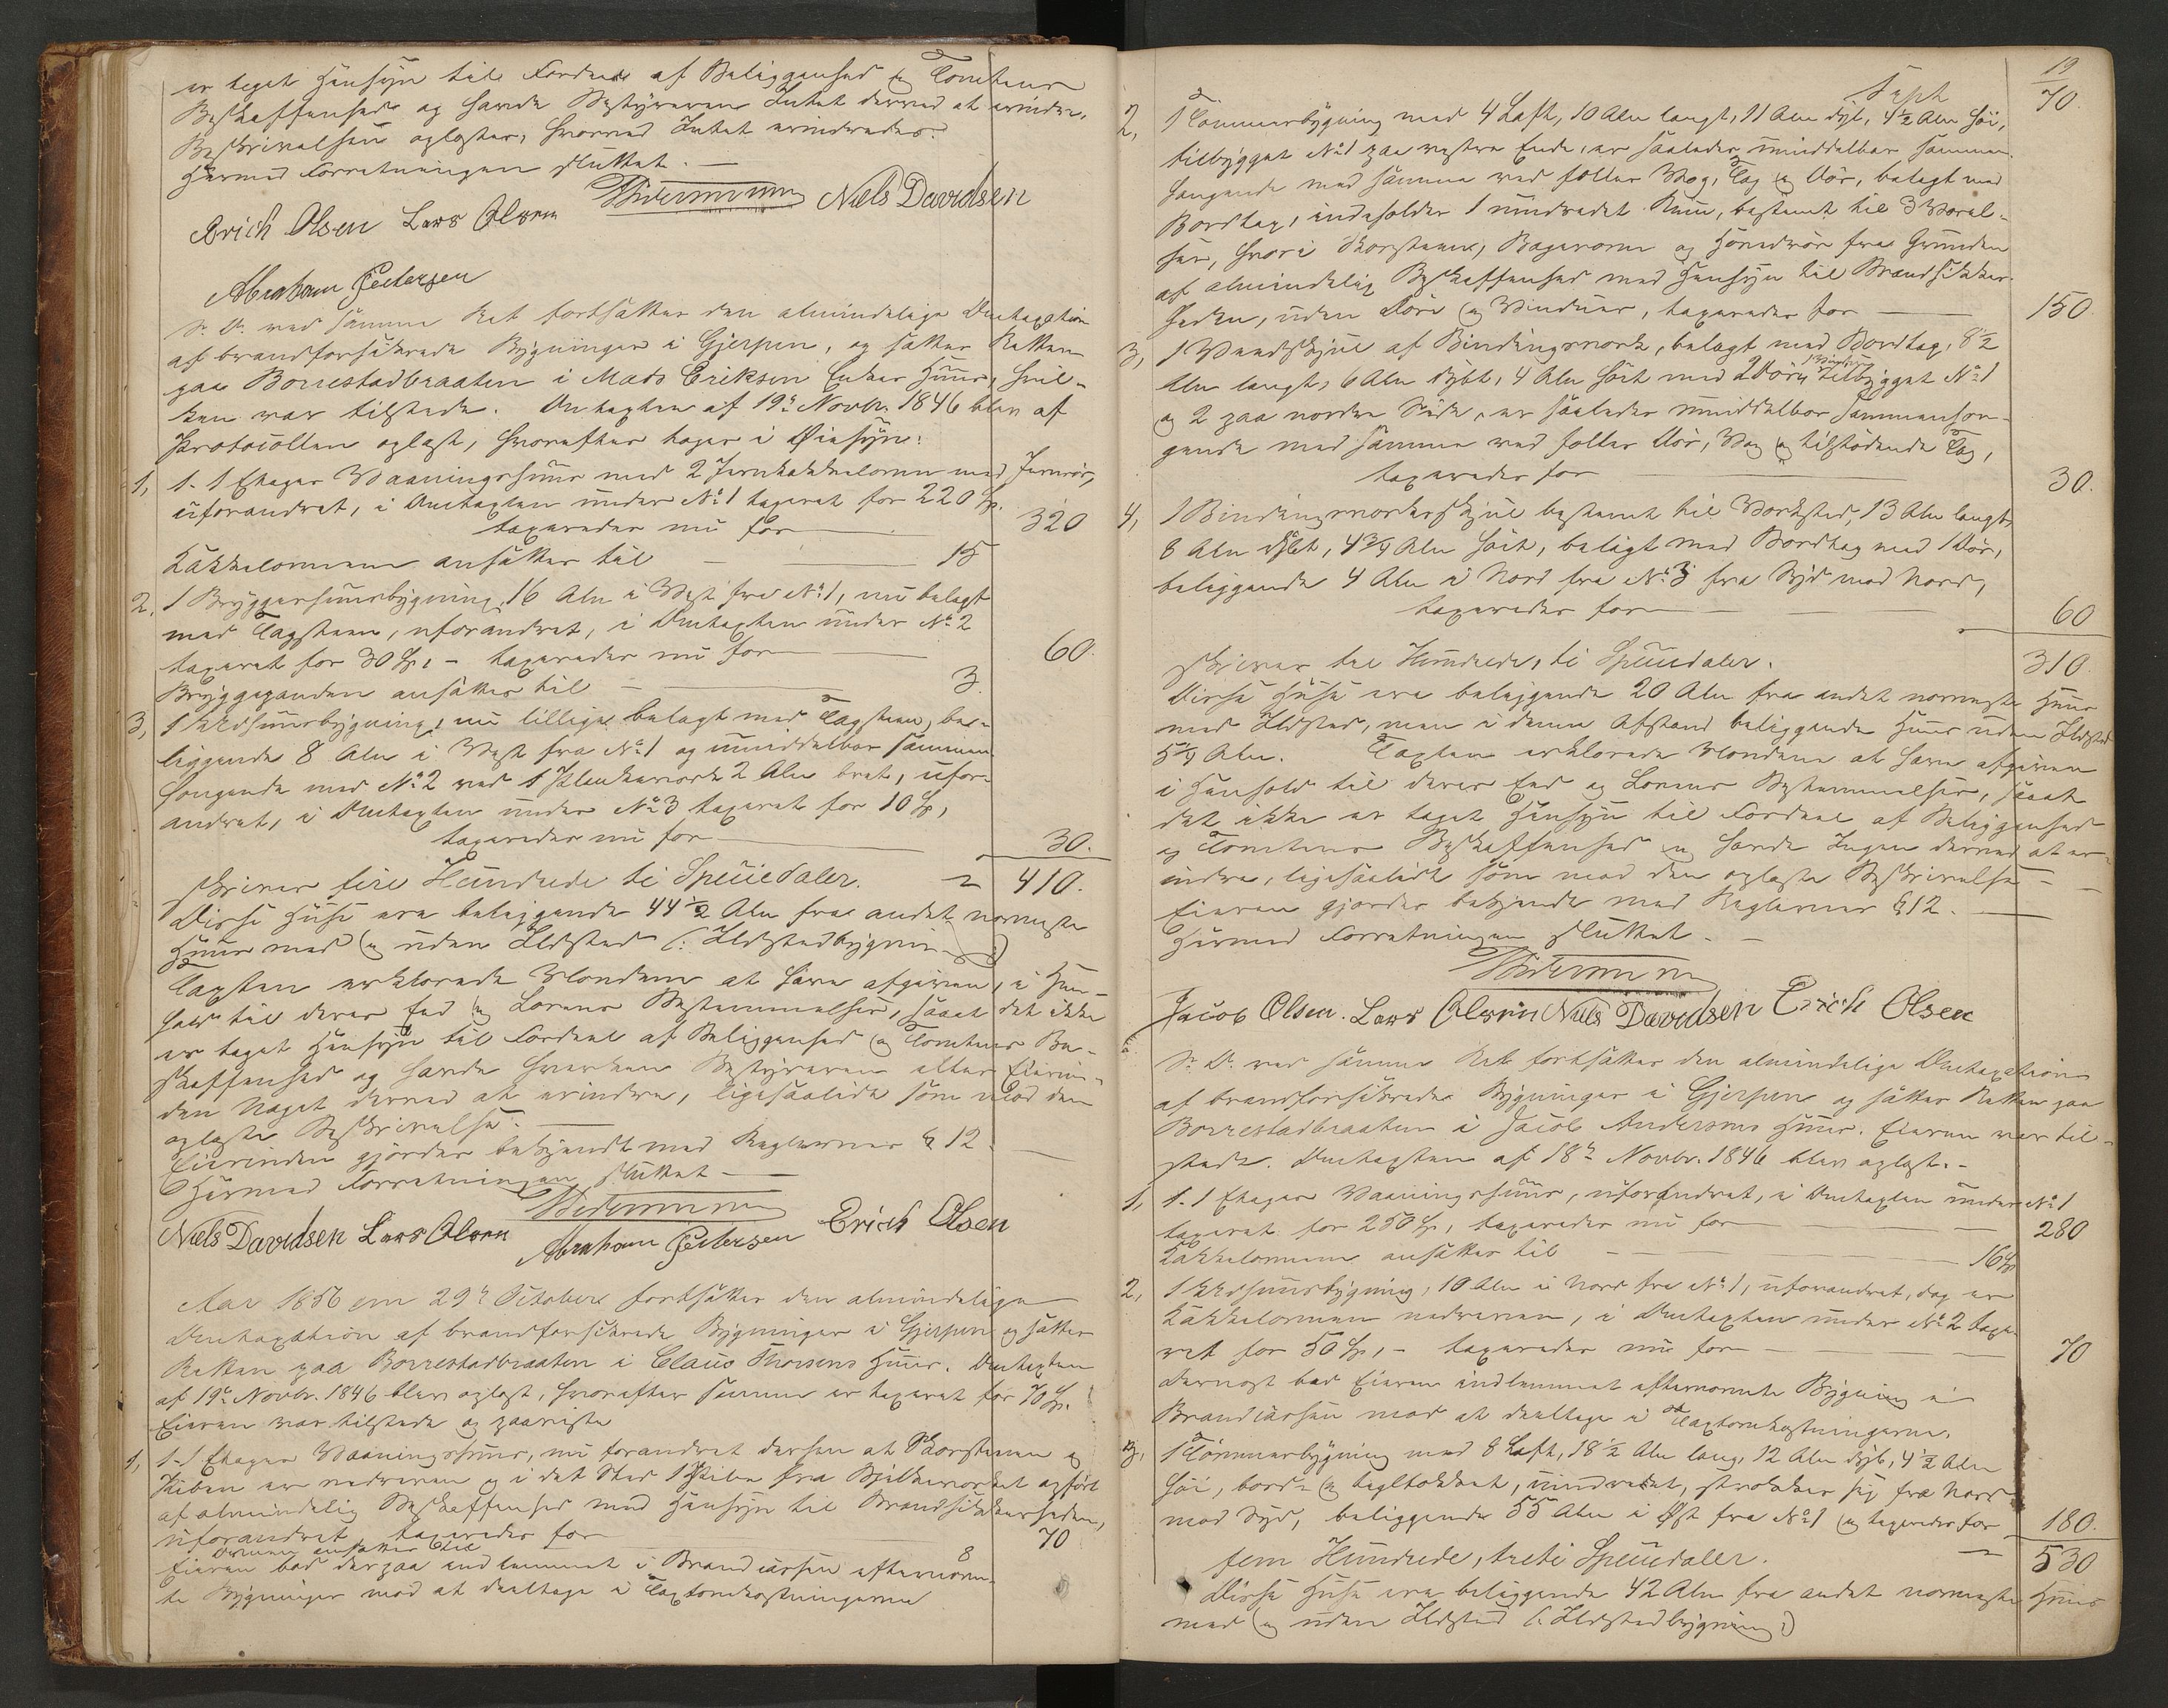 er taget Hensyn til Fordele af Beliggenhed og Tomtens
Beskaffenhed og havde Bestyreren Intet derved at erindre.
Beskrivelsen oplæstes, hvorved Intet erindredes.
Hermed Forretningen sluttet. —
Erich Olsen Lars Olsen Widermann Niels Davidsen
Abraham Pedersen
S. D. ved samme Ret fortsættes den almindelige Omtaxation
af brandforsikrede Bygninger i Gjerpen, og sattes Retten
paa Borrestadbraaten i Mads Eriksen Enkes Huus, hvil-
ken var tilstede. Omtaxten af 19de Novbr. 1846 blev af
Protocollen oplæst, hvorefter toges i Øiesyn:
1, 1. 1 Etages Vaaningshuus med 2 Jernkakkelovne med Jernrör,
uforandret, i Omtaxten under No 1 taxeret for 220 Sp.
taxeredes nu for — 320
Kakkelovnene ansættes til — 15
2. 1 Bryggerhuusbygning, 16 Alen i Vest fra No 1, nu belagt
med Tagsteen, uforandret, i Omtaxten under No 2
taxeret for 30 Sp, – taxeredes nu for — 60.
Bryggepanden ansættes til — 3.
3, 1 Vedhuusbygning, nu tillige belagt med Tagsteen, be-
liggende 8 Alen i Vest fra No 1 og umiddelbar sammen
hængende med No 2 ved 1 Plankeværk 2 Alen bret, ufor-
andret, i Omtaxten under No 3 taxeret for 10 Sp,
taxeredes nu for — 30.
skriver fire Hundrede ti Speciedaler. 410.
Disse Huse ere beliggende 44 1/2 Alen fra andet nærmeste
Huus med og uden Ildsted (: Ildstedbygning :)
Taxten erklærede Mændene at have afgiven, i Hen-
hold til deres Eed og Lovens Bestemmelser, saaat det ikke
er taget Hensyn til Fordele af Beliggenhed og Tomtens Be-
skaffenhed og havde hverken Bestyreren eller Eierin-
den Noget derved at erindre, ligesaalidt som mod den
oplæste Beskrivelse. —
Eierinden gjordes bekjendt med Reglernes § 12. —
Hermed Forretningen sluttet —
Niels Davidsen Lars Olsen Widermann Abraham Pedersen Erich Olsen
Aar 1856 den 29de Octobere fortsattes den almindelige
Omtaxation af brandforsikrede Bygninger i Gjerpen og sattes
Retten paa Borrestadbraaten i Claus Thorsens Huus. Omtaxten
af 19de Novbr. 1846 blev oplæst, hvorefter samme er taxeret for 70 Sp.
Eieren var tilstede og paaviste
1, 1. 1 Etages Vaaningshuus, nu forandret derhen at Skorstenen og
Piben er nedreven og i det Sted 1 Pibe fra Bjelkeværket opført
af almindelig Beskaffenhed med Hensyn til Brandsikkerheden,
uforandret taxeredes for — 70
Ovnen ansættes til 8
Eieren bad derpaa indlemmet i Brandcassen efternævn-
te Bygninger mod at deeltage i Taxtomkostningerne
19
70.
2, 1 Tømmerbygning med 4 Laft, 10 Alen langt, 11 Alen dyb, 4 1/2 Alen høi,
tilbygget No 1 paa vestre Ende, er saaledes umiddelbar sammen-
hængende med samme ved fælles Væg, Tag og Dör, belagt med
Bordtag, indeholder 1 uindredet Rum, bestemt til 3 Værel-
ser, hvori Skorsteen, Bagerovn og Hovedrör fra Grunden
af almindelig Beskaffenhed med Hensyn til Brandsikker-
heden, uden Döre og Vinduer, taxeredes for — 150.
3, 1 Vandskjul af Bindingsværk, belagt med Bordtag, 8 1/2
Alen langt, 6 Alen dybt, 4 Alen høit med 2 Döre tilbygget No 1
og 2 paa nordre Side, er saaledes umiddelbar sammenhæn-
gende med samme ved fælles Dör, Væg og tilstödende Tag,
taxeredes for — 30.
4, 1 Bindingsværksskjul bestemt til Værksted, 13 Alen langt,
8 Alen dybt, 4 3/4 Alen høit, belagt med Bordtag med 1 Dör,
beliggende 4 Alen i Nord fra No 3 fra Syd mod Nord,
taxeredes for — 60
skriver tre Hundrede, ti Speciedaler. 310.
Disse Huse ere beliggende 20 Alen fra andet nærmeste Huus
med Ildsted, men i denne Afstand beliggende Huus uden Ildsted
5 3/4 Alen. Taxten erklærede Mændene at have afgiven
i Henhold til deres Eed og Lovens Bestemmelser, saaat
det ikke er taget Hensyn til Fordele af Beliggenhed
og Tomtens Beskaffenhed og havde Ingen derved at er-
indre, ligesaalidt som mod den oplæste Beskrivelse —
Eieren gjordes bekjendt med Reglernes § 12. —
Hermed Forretningen sluttet. —
Widermann
Jacob Olsen. Lars Olsen Niels Davidsen Erich Olsen
S. D. ved samme Ret fortsættes den almindelige Omtaxation
af brandforsikrede Bygninger i Gjerpen og sattes Retten paa
Borrestadbraaten i Jacob Andersens Huus. Eieren var til-
stede. Omtaxten af 18de Novbr. 1846 blev oplæst. –
1, 1. 1 Etages Vaaningshuus, uforandret, i Omtaxten under No 1
taxeret for 250 Sp, taxeredes nu for — 280
Kakkelovnene ansættes til — 16 Sp
2, 1 Vedhuusbygning, 10 Alen i Nord fra No 1, uforandret, dog er
Kakkelovnen nedreven, i Omtaxten under No 2 taxe-
ret for 50 Sp, – taxeredes nu for — 70
Dernæst bad Eieren indlemmet efternævnte Bygning i
Brandcassen mod at deeltage i Taxtomkostningerne.
3, 1 Tømmerbygning med 8 Laft, 18 1/2 Alen lang, 12 Alen dyb, 4 1/2 Alen
høi, bord- og tegltækket, uindredet, strækker sig fra Nord
mod Syd, beliggende 55 Alen i Øst fra No 1 og taxeredes for 180.
fem Hundrede, treti Speciedaler. 530
Disse Huse ere beliggende 42 Alen fra andet nærmeste Huus
med og uden Ildsted (: Ildstedbygning :)